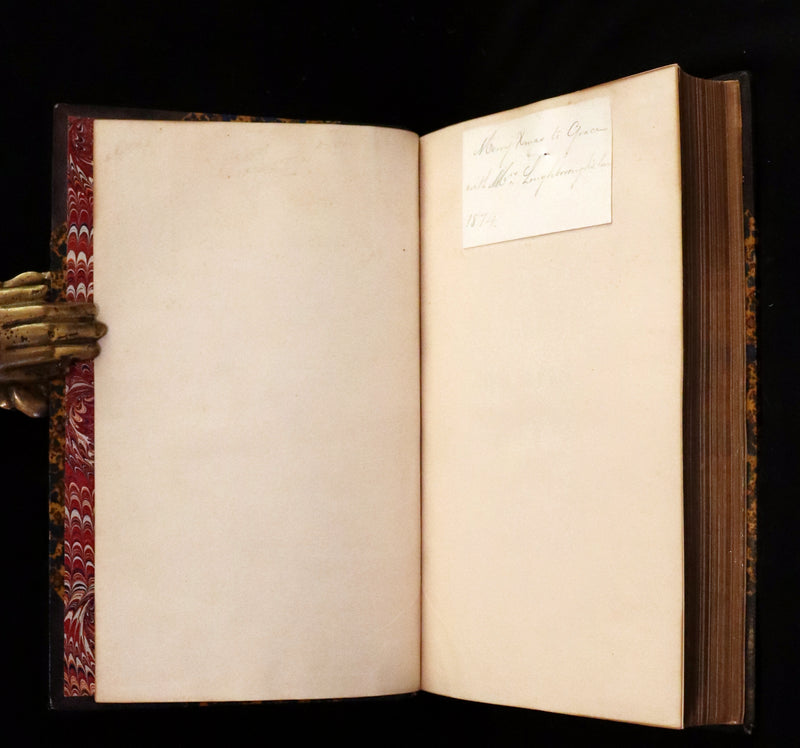 Merry Xmas to Grace
with Mrs. Loughborough's love
1874.